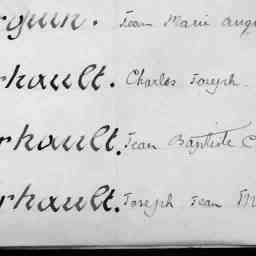 rguin. Jean Marie augu
rhault. Charles Joseph.
rhault. Jean Baptiste C
rhault. Joseph Jean M